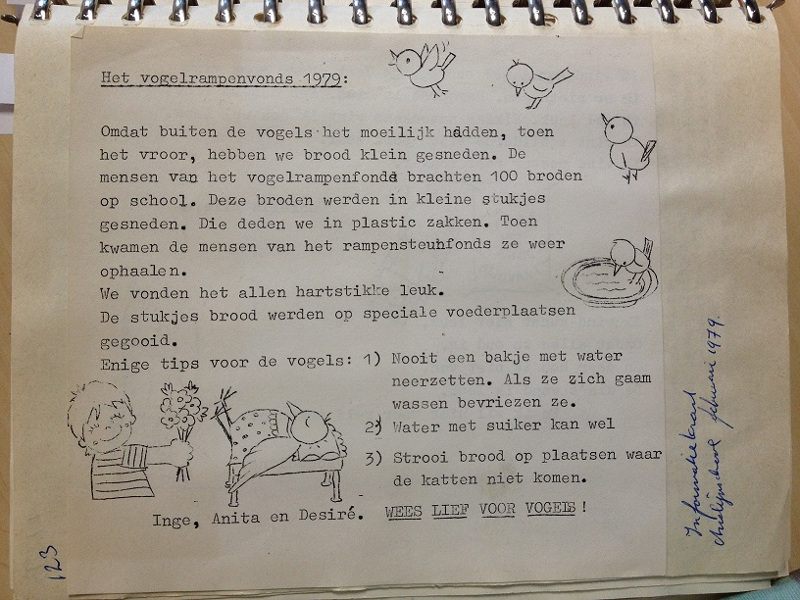 Het vogelrampenvonds 1979:
Omdat buiten de vogels het moeilijk hadden, toen
het vroor, hebben we brood klein gesneden. De
mensen van het vogelrampenfonds brachten 100 broden
op school. Deze broden werden in kleine stukjes
gesneden. Die deden we in plastic zakken. Toen
kwamen de mensen van het rampensteunfonds ze weer
ophaalen.
We vonden het allen hartstikke leuk.
De stukjes brood werden op speciale voederplaatsen
gegooid.
Enige tips voor de vogels: 1) Nooit een bakje met water
neerzetten. Als ze zich gaam
wassen bevriezen ze.
2) Water met suiker kan wel
3) Strooi brood op plaatsen waar
de katten niet komen.
Inge, Anita en Desiré. WEES LIEF VOOR VOGELS!
Informatiekrant
februari 1979.
123